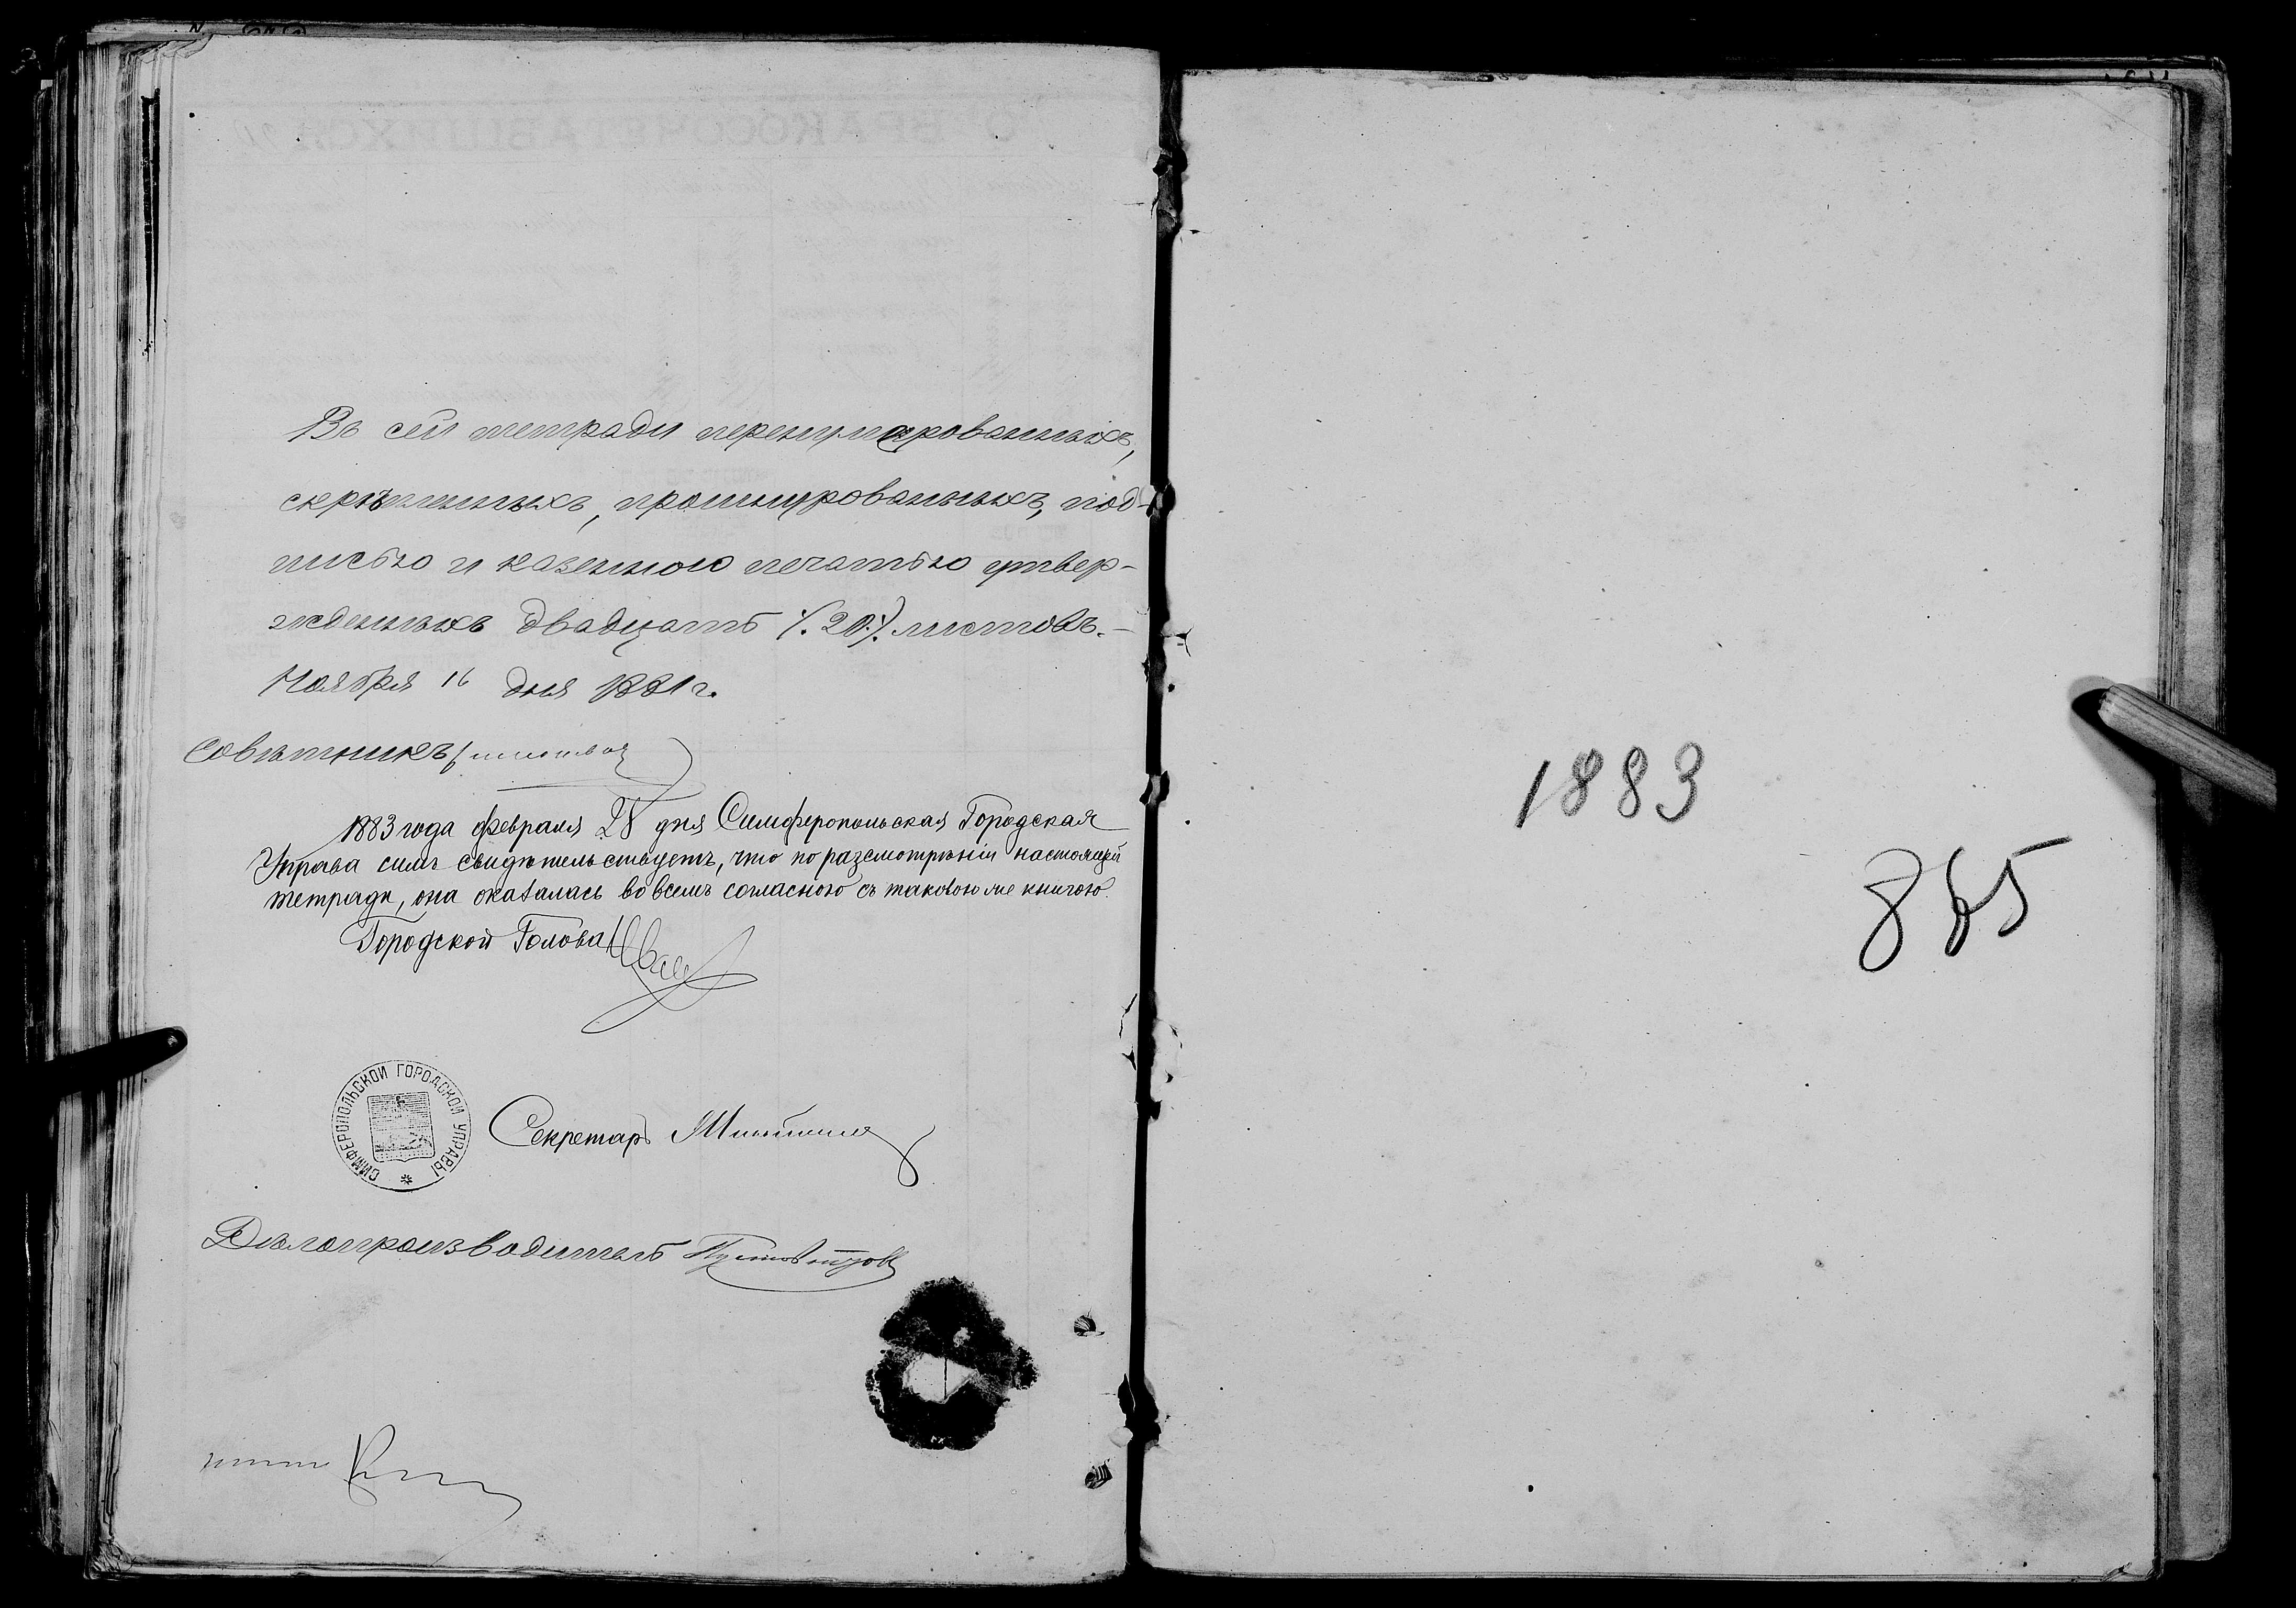 Въ сей тетради перенумерованныхъ,
скрѣпленныхъ, прошнурованныхъ, под-
писью и казенною печатью утвер-
жденныхъ двадцать /.20./ листовъ.-
Ноября 16 дня 1881 г.
Совѣтникъ
1883 года февраля 28 дня Симферопольская Городская
Управа симъ свидѣтельствуетъ, что по разсмотрѣніи настоящей
тетради, она оказалась во всемъ согласною съ таковою же книгою.
Городской Голова
СИМФЕРОПОЛЬСКОЙ ГОРОДСКОЙ УПРАВЫ
Секретарь
Дѣлопроизводитель
1883
865